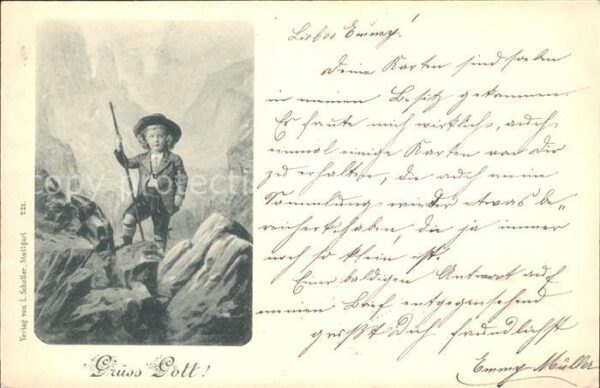 Liebes Emmy!
Deine Karten sind soeben
in meinen Besitz gekommen.
Es freute mich wirklich, auch
einmal einige Karten von Dir
zu erhalten, die auch meine
Sammlung wieder etwas be=
reichert haben, die ja immer
noch so klein ist.
Einer baldigen Antwort auf
meinen Brief entgegensehend
grüßt Dich freundlichst
Emmy Müller
Grüss Gott!
Verlag von L. Schaller, Stuttgart. 221.
copy-protect